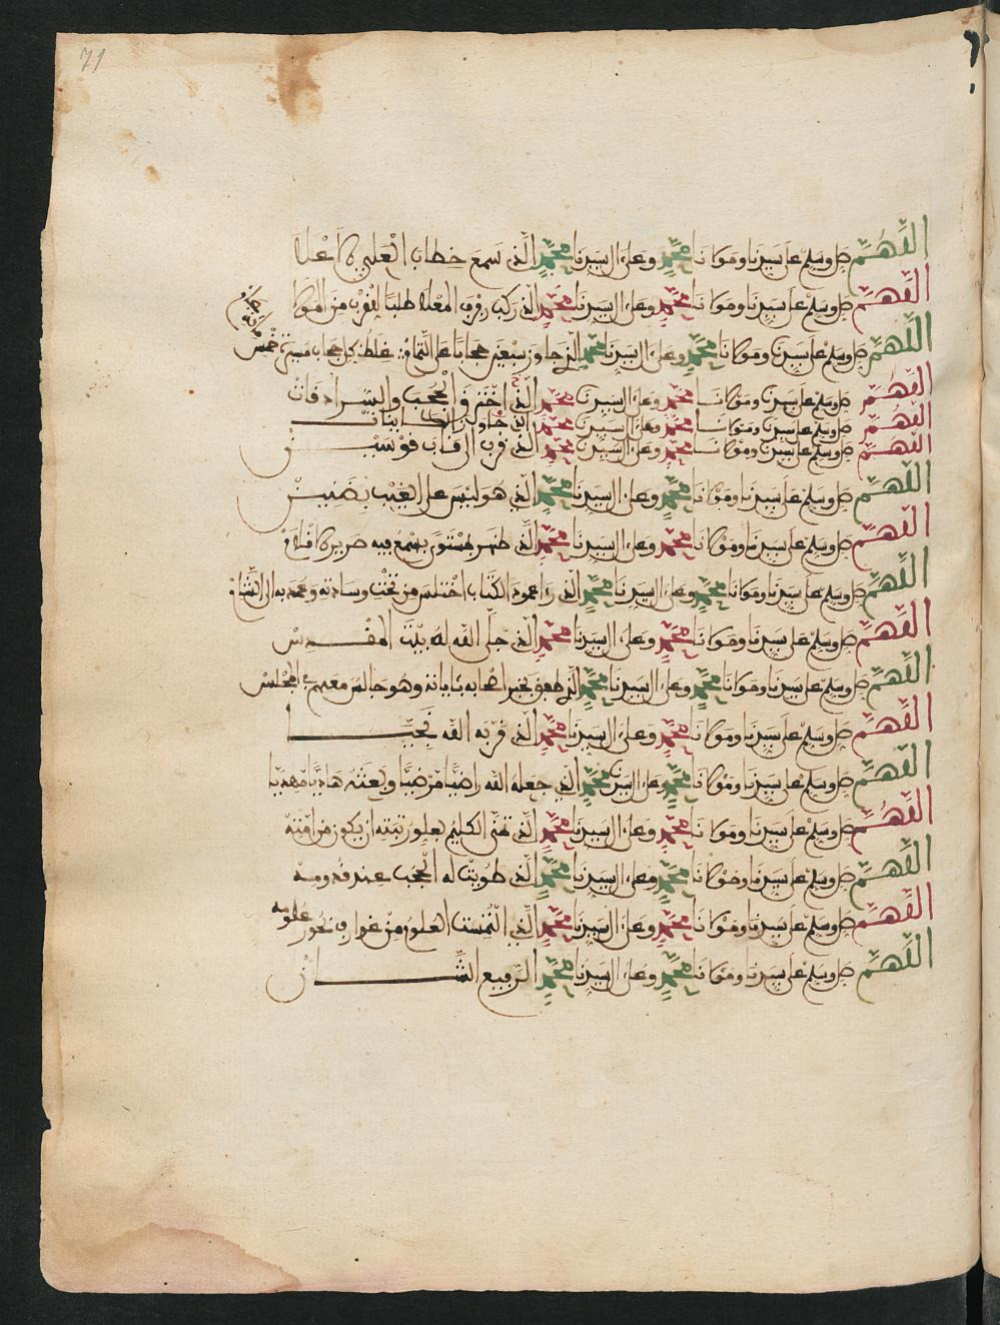 71
اللهم صل وسلم على سيدنا ومولانا محمد وعلى ال سيدنا محمد الذي سمع خطاب العلي الاعلا
اللهم صل وسلم على سيدنا ومولانا محمد وعلى ال سيدنا محمد الذي ركب رفرف المعلا طلبا للقرب من المولا
اللهم صل وسلم على سيدنا ومولانا محمد وعلى ال سيدنا محمد الذي جاوز سبعين حجابا على التمام غلظ كل حجاب مسيرة خمس
اللهم صل وسلم على سيدنا ومولانا محمد وعلى ال سيدنا محمد الذي اخترق الحجب والسرادقات
اللهم صل وسلم على سيدنا ومولانا محمد وعلى ال سيدنا محمد الذي
اللهم صل وسلم على سيدنا ومولانا محمد وعلى ال سيدنا محمد الذي قرب الى قاب قوسين
اللهم صل وسلم على سيدنا ومولانا محمد وعلى ال سيدنا محمد الذي هو ليس على الغيب بضنين
اللهم صل وسلم على سيدنا ومولانا محمد وعلى ال سيدنا محمد الذي ظهر لمستوى يسمع فيه صرير الاقلام
اللهم صل وسلم على سيدنا ومولانا محمد وعلى ال سيدنا محمد الذي راى عمود الكتاب اختلس من تحت وسادته وعمد به الى الشام
اللهم صل وسلم على سيدنا ومولانا محمد وعلى ال سيدنا محمد الذي جلى الله له بيت المقدس
اللهم صل وسلم على سيدنا ومولانا محمد وعلى ال سيدنا محمد الذي طفق يخبر اصحابه باياته وهو جالس معهم في المجلس
اللهم صل وسلم على سيدنا ومولانا محمد وعلى ال سيدنا محمد الذي قربه الله نجيا
اللهم صل وسلم على سيدنا ومولانا محمد وعلى ال سيدنا محمد الذي جعله الله راضيا مرضيا وبعثه هاديا مهديا
اللهم صل وسلم على سيدنا ومولانا محمد وعلى ال سيدنا محمد الذي تمنى الكليم لعلو رتبته ان يكون من امته
اللهم صل وسلم على سيدنا ومولانا محمد وعلى ال سيدنا محمد الذي طويت له الحجب عند قدومه
اللهم صل وسلم على سيدنا ومولانا محمد وعلى ال سيدنا محمد الذي التمست العلوم من غوارف بحور علومه
اللهم صل وسلم على سيدنا ومولانا محمد وعلى ال سيدنا محمد الرفيع الشان